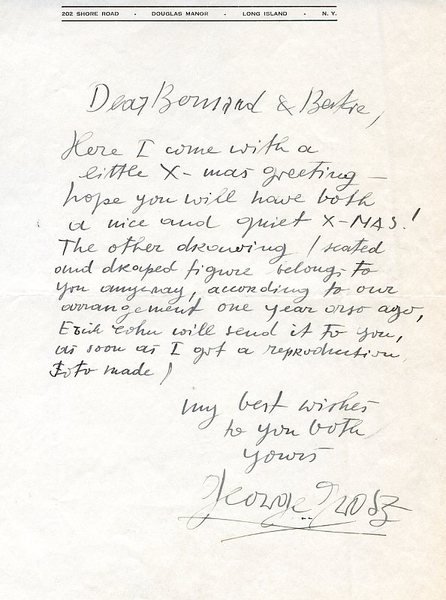 202 SHORE ROAD · DOUGLAS MANOR · LONG ISLAND · N.Y.
Dear Bernard & Beckie,
Here I come with a
little X-mas greeting –
hope you will have both
a nice and quiet X-MAS!
The other drawing / seated
and draped figure belongs to
you anyway, according to our
arrangement one year or so ago,
Erich Cohn will send it to you,
as soon as I got a reproduction
Foto made /
my best wishes
to you both
yours
George Grosz